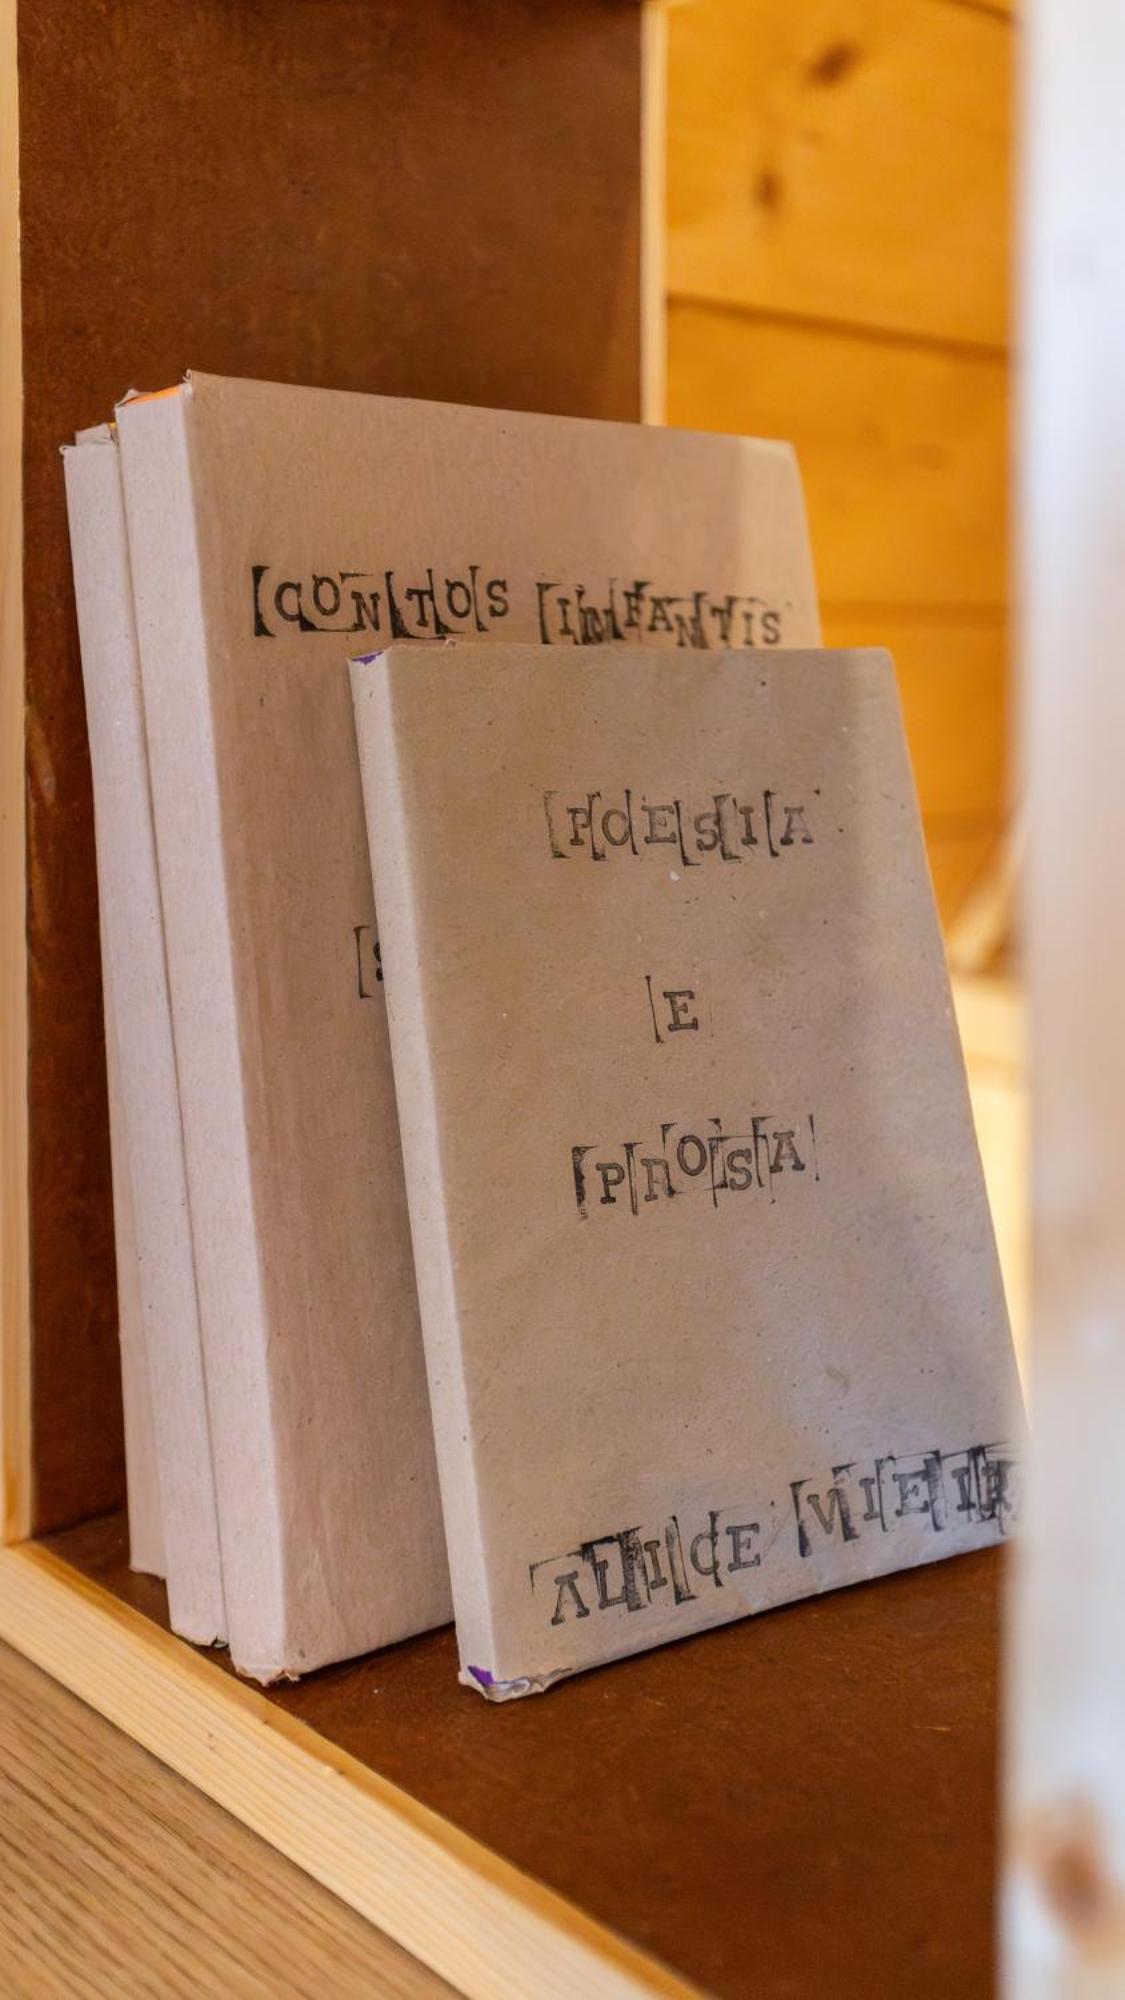 CONTOS INFANTIS
POESIA
E
PROSA
ALICE VIEIR